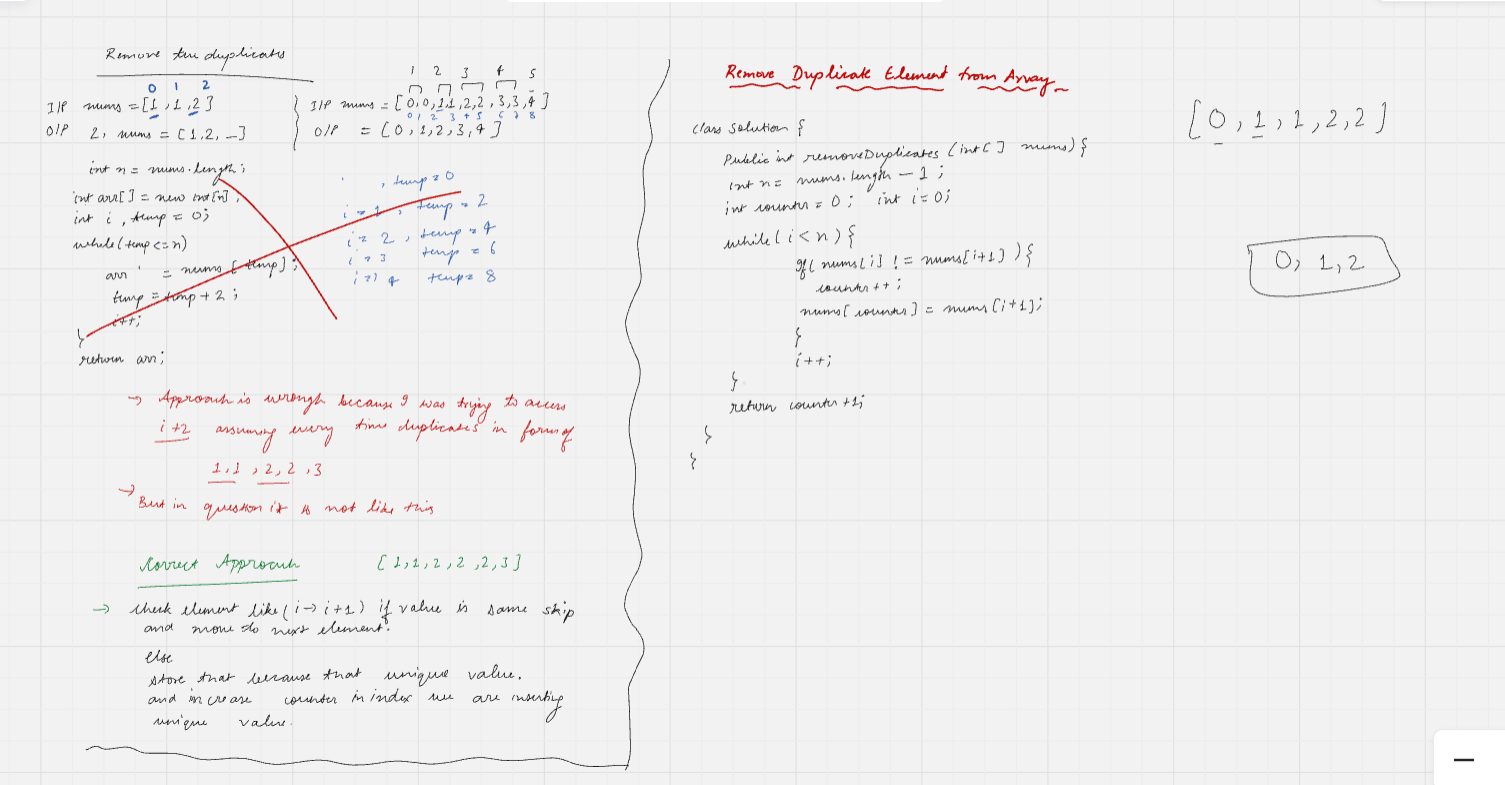 Remove the duplicates
0 1 2
I/P nums = [1, 1, 2]
O/P 2, nums = [1, 2, _]
1 2 3 4 5
I/P nums = [0,0,1,1,2,2,3,3,4]
0 1 2 3 4 5 6 7 8
O/P = [0,1,2,3,4]
int n = nums.length;
int arr[] = new int[n];
int i, temp = 0;
while(temp<=n)
arr = nums[temp];
temp = temp + 2;
i++;
}
return arr;
, temp = 0
i = 1, temp = 2
i = 2, temp = 4
i = 3 temp = 6
i = 4 temp = 8
→ Approach is wrongh because I was trying to access
i+2 assuming every time duplicates in form of
1,1, 2,2, 3
→ But in question it is not like this
Correct Approach [1,1,2,2,2,3]
→ check element like (i → i+1) if value is same skip
and move to next element.
else
store that because that unique value.
and increase counter in index we are inserting
unique value.
Remove Duplicate Element from Array
class Solution {
Public int removeDuplicates (int[] nums) {
int n = nums.length - 1;
int counter = 0; int i=0;
while(i<n) {
if(nums[i] != nums[i+1]) {
counter++;
nums[counter] = nums[i+1];
}
i++;
}
return counter+1;
}
}
[0, 1, 1, 2, 2]
0, 1, 2